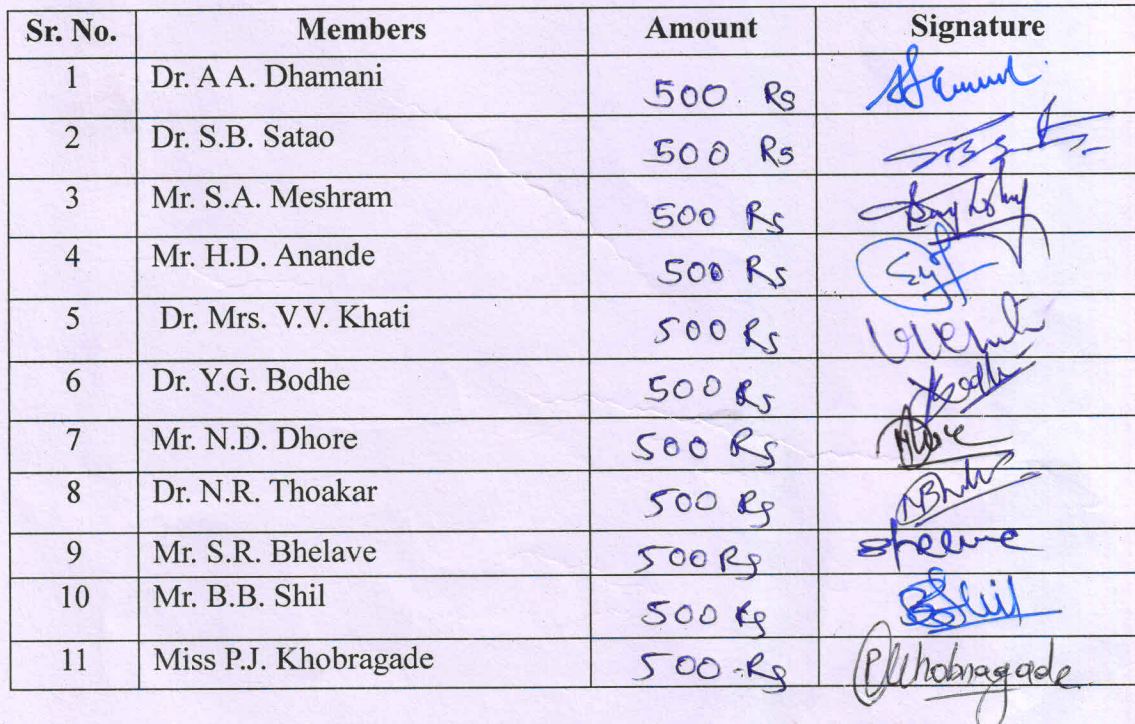 Sr. No. Members Amount Signature
1 Dr. A A. Dhamani 500 Rs
2 Dr. S.B. Satao 500 Rs
3 Mr. S.A. Meshram 500 Rs
4 Mr. H.D. Anande 500 Rs
5 Dr. Mrs. V.V. Khati 500 Rs
6 Dr. Y.G. Bodhe 500 Rs
7 Mr. N.D. Dhore 500 Rs
8 Dr. N.R. Thoakar 500 Rs
9 Mr. S.R. Bhelave 500 Rs
10 Mr. B.B. Shil 500 Rs BShil
11 Miss P.J. Khobragade 500 Rs PKhobragade